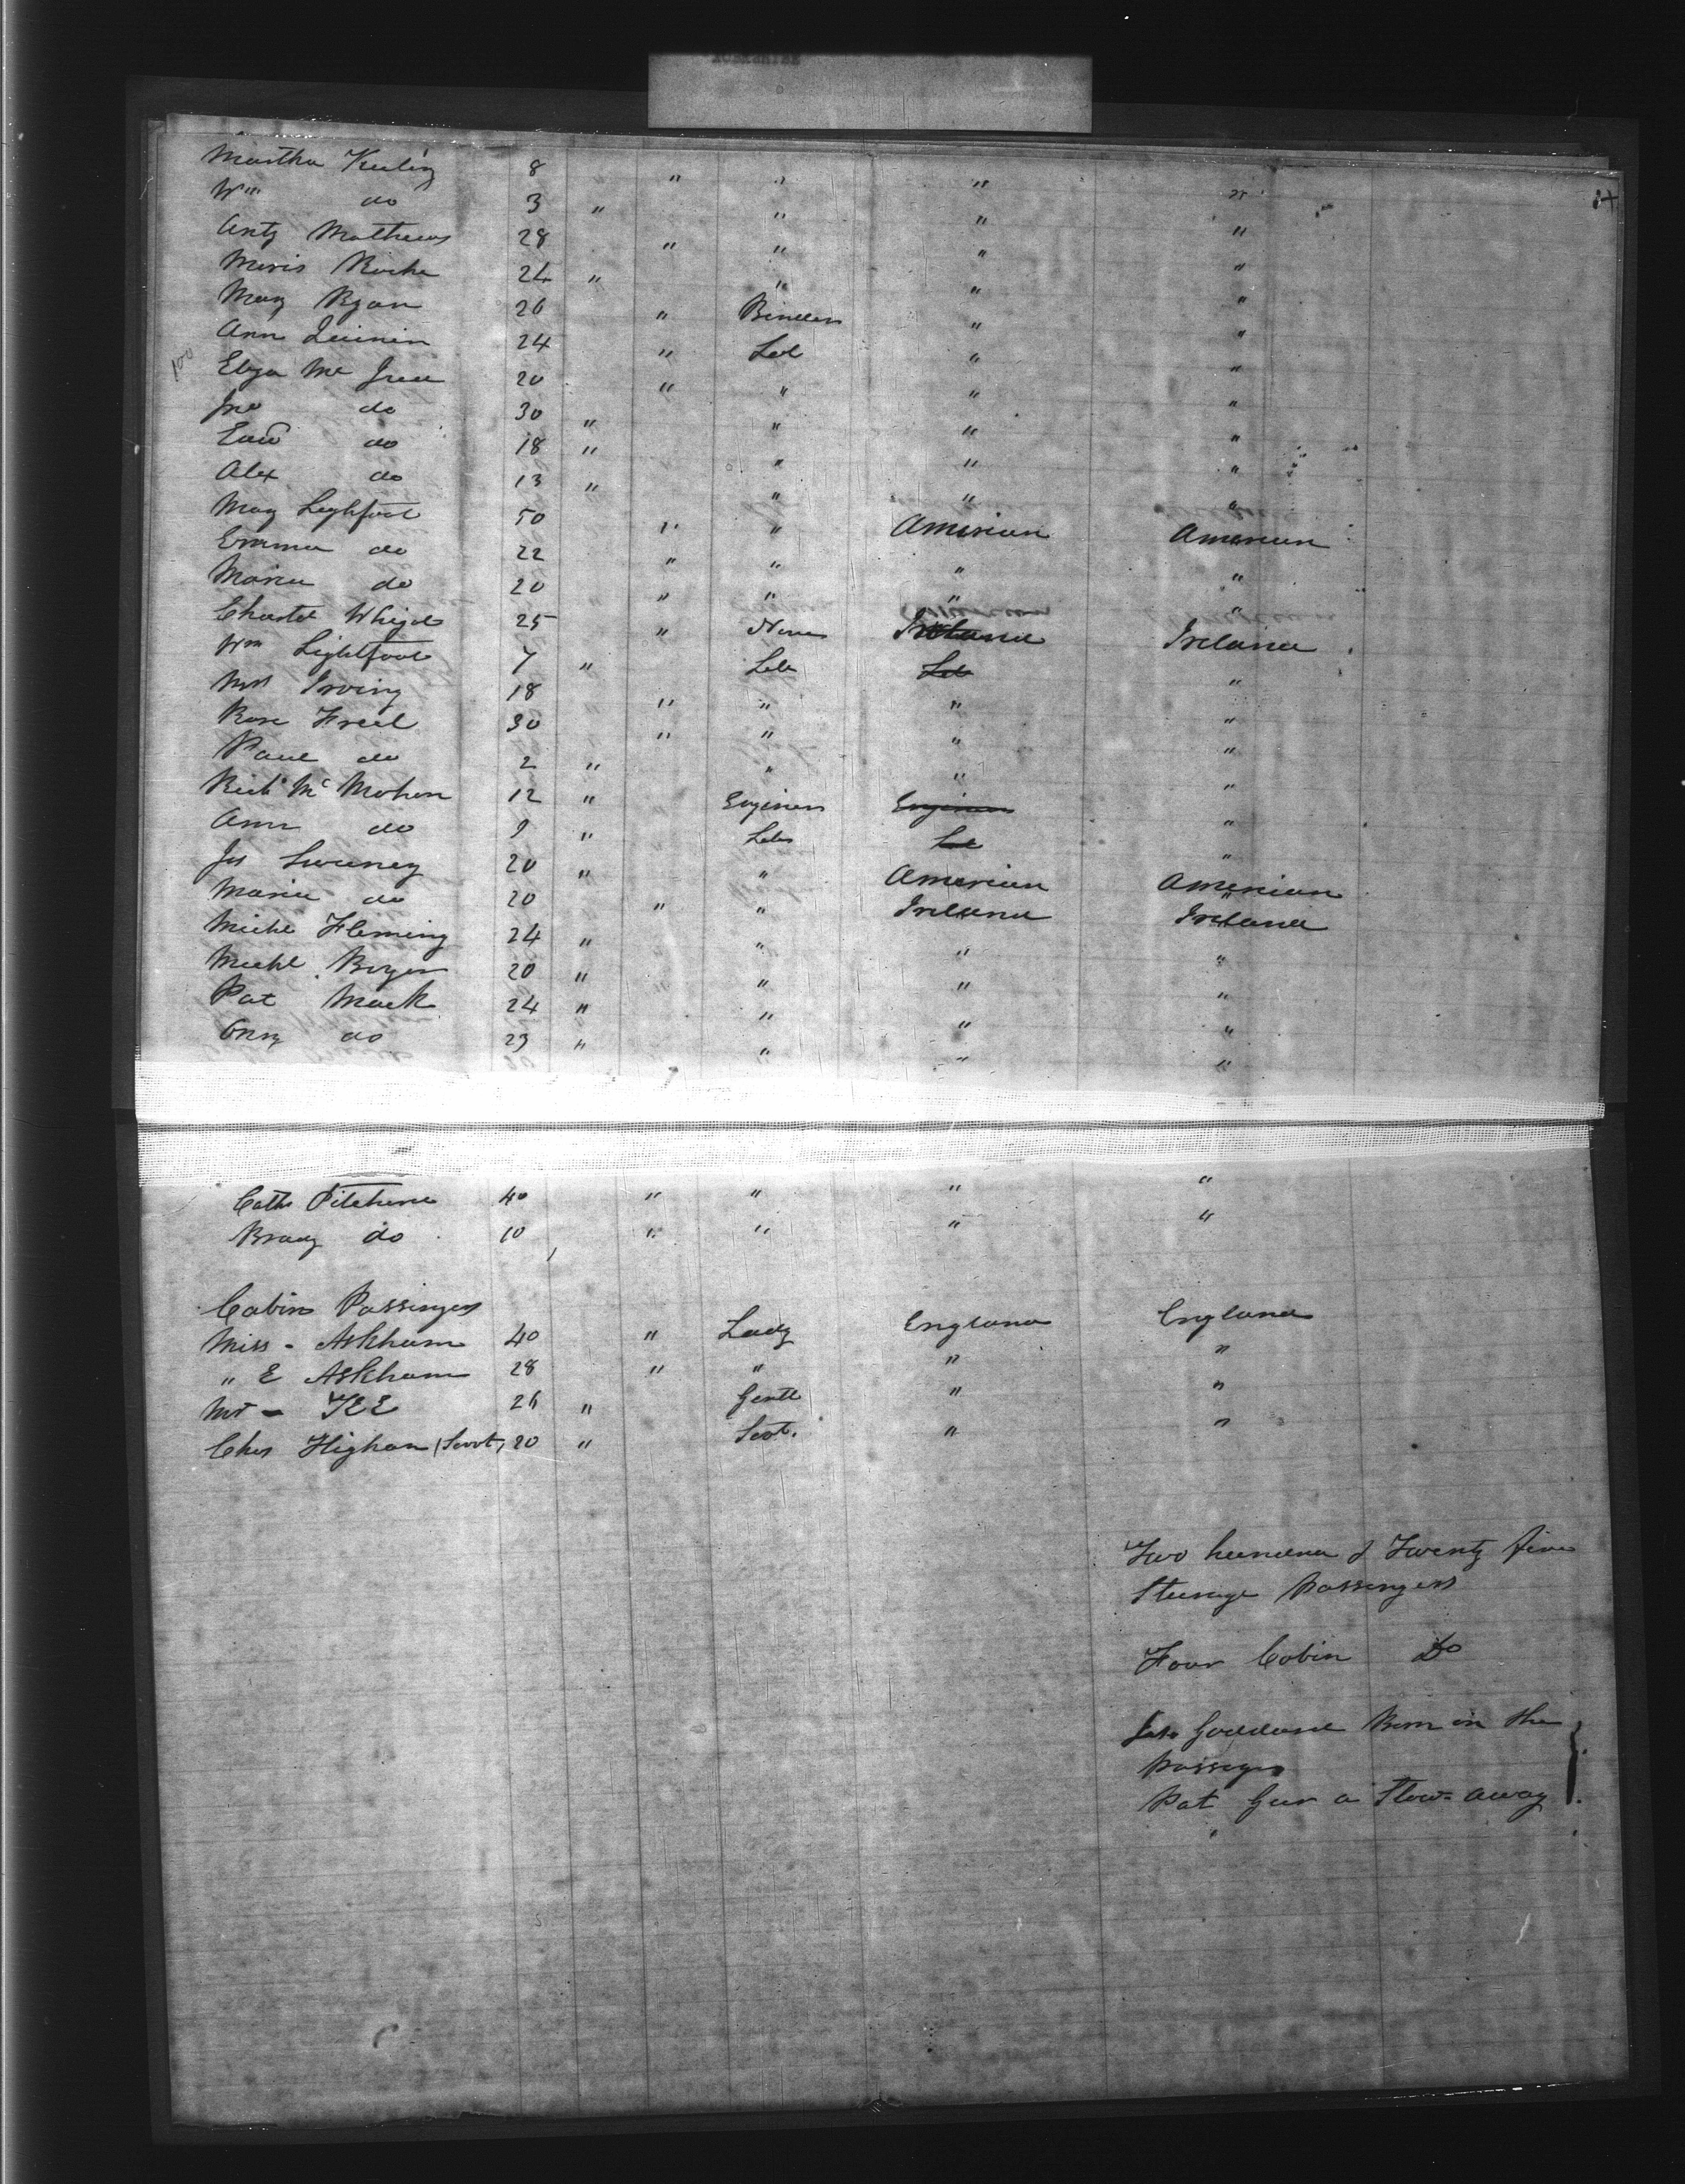 YORKSHIRE
Martha Keeling 8 " " " "
Wm do 3 " " " "
Anty Mathews 28 " " " "
Moris Roche 24 " " " "
Mary Ryan 26 " " "
Ann 24 " Lab " "
100 Eliza Mc 20 " " " "
Jno do 30 " " " "
Edwd do 18 " " " "
Alex do 13 " " " "
Mary Lightfoot 50 " " American American
Emma do 22 " " " "
Maria do 20 " " " "
25 " Ireland Ireland
Wm Lightfoot 7 " Lab Lab "
Mrs Irving 18 " " " "
Rose Freel 30 " " " "
Paul do 2 " " " "
Richd Mc Mohon 12 " Engineer Engineer "
Ann do 9 " Lab Lab "
Js Sweeney 20 " " American American
Maria do 20 " " Ireland Ireland
Michl Fleming 24 " " " "
Michl 20 " " " "
Pat Mack 24 " " " "
do 23 " " " "
Cath 40 " " " "
do 10 " " " "
Cabin Passengers
Miss - Askham 40 " Lady England England
" E Askham 28 " " " "
Mr - TEE 26 " Gentl " "
Chas Higham (Servt) 20 " Sevt. " "
Two hundred & Twenty five
Steerage Passengers
Four Cabin Do
Goddard Born on the
Passage
Pat a Stow-away